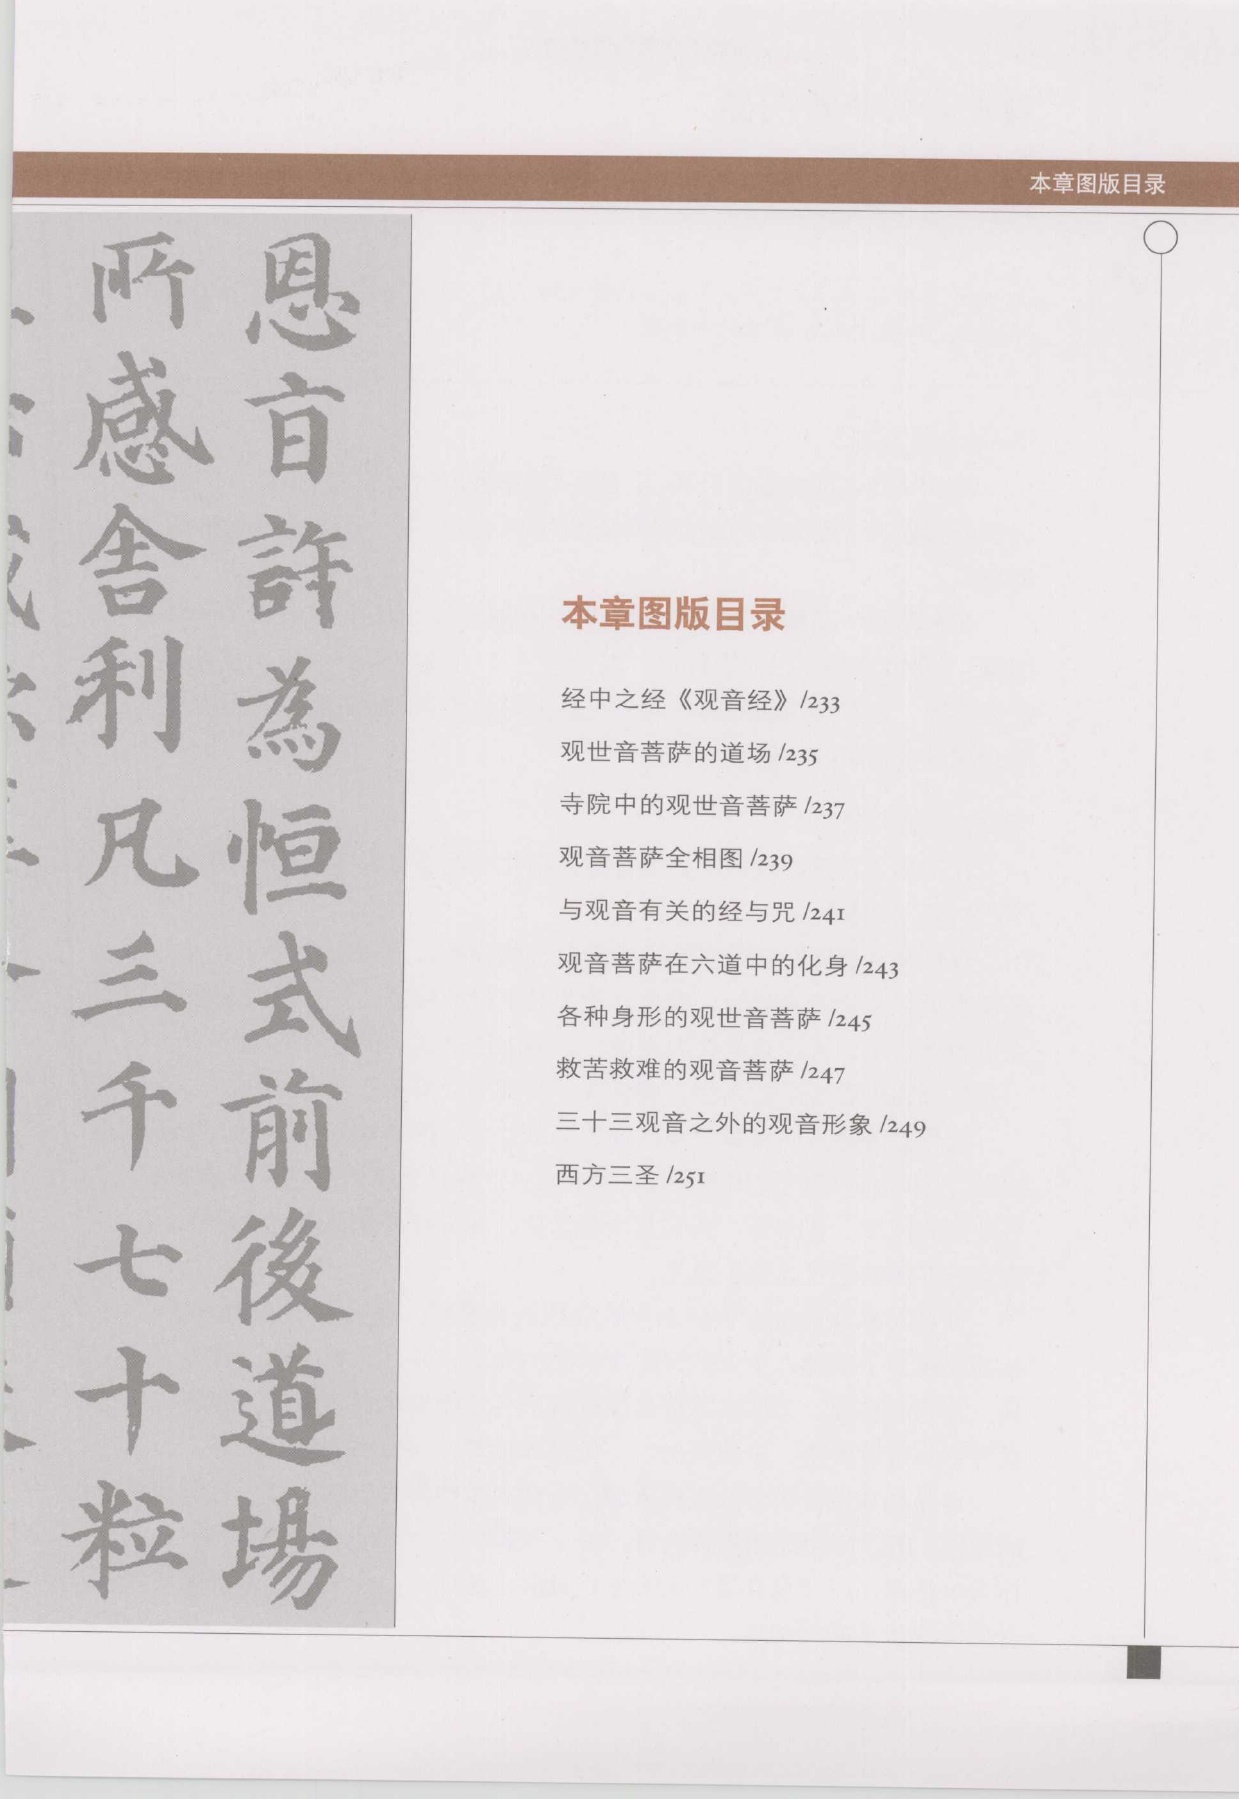 本章图版目录
恩旨許為恒式前後道場
所感舍利凡三千七十粒
本章图版目录
经中之经《观音经》/233
观世音菩萨的道场 /235
寺院中的观世音菩萨 /237
观音菩萨全相图 /239
与观音有关的经与咒 /241
观音菩萨在六道中的化身 /243
各种身形的观世音菩萨 /245
救苦救难的观音菩萨 /247
三十三观音之外的观音形象 /249
西方三圣 /251